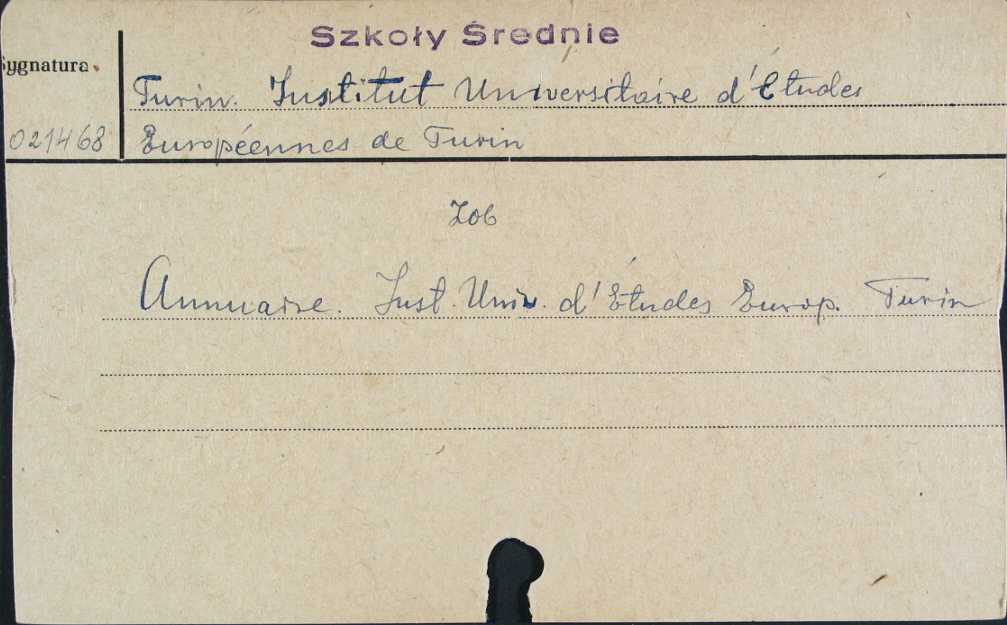 Szkoły Średnie
Sygnatura
Turin. Institut Universitaire d'Études
021468 Européennes de Turin
Zob
Annuaire. Inst. Univ. d'Études Europ. Turin